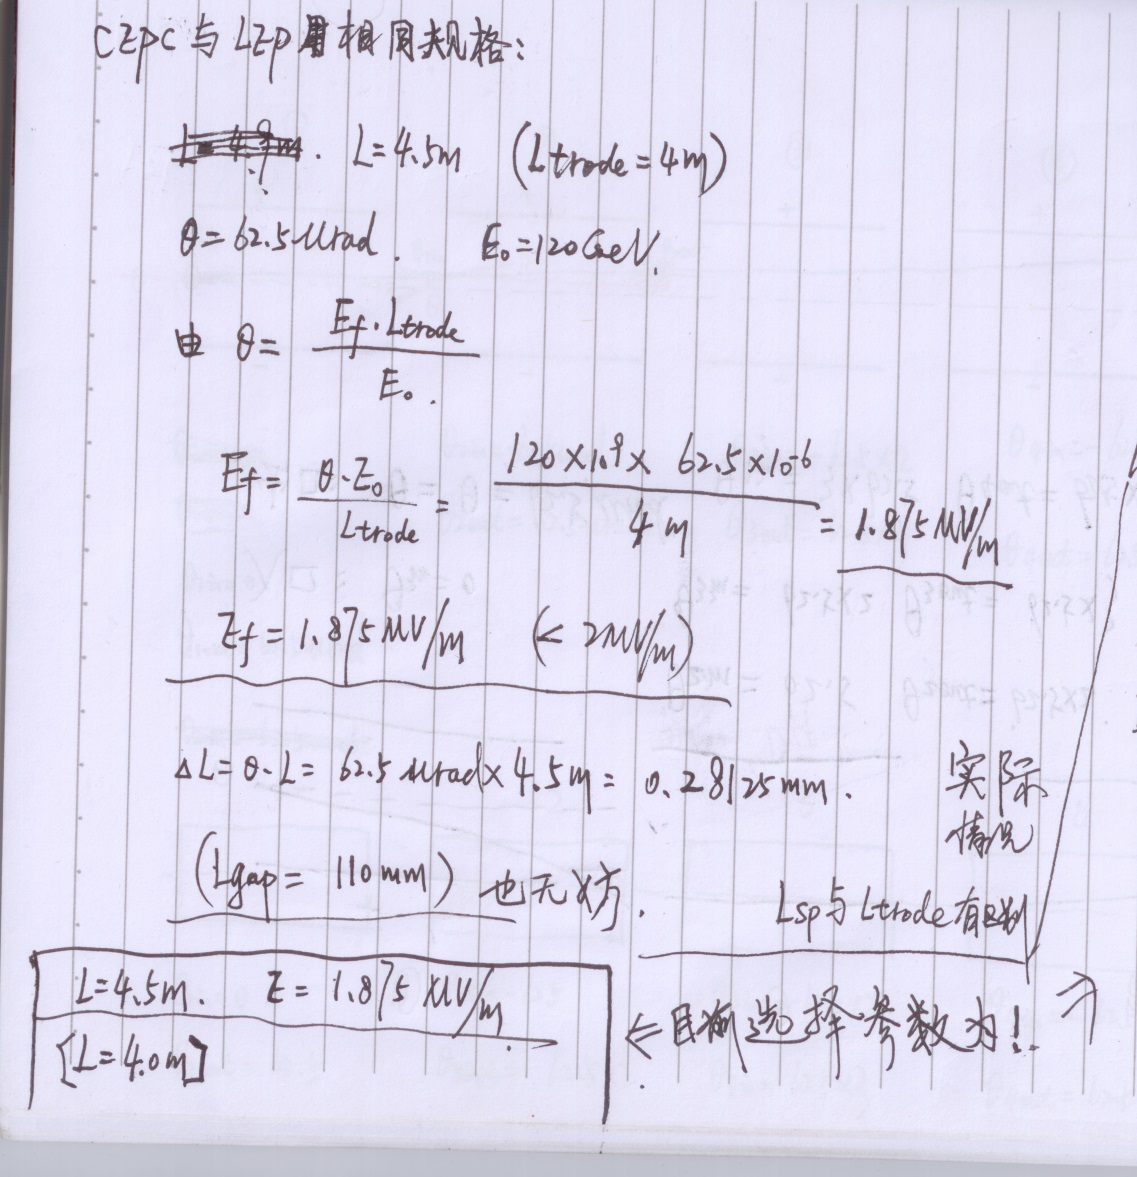 CEPC与LEP用相同规格:
L=4.5m (Ltrode=4m)
θ=62.5μrad. E₀=120GeV.
由 θ= Ef·Ltrode / E₀.
Ef= θ·E₀ / Ltrode = 120×1.⁹× 62.5×10⁻⁶ / 4m = 1.875MV/m
Ef=1.875MV/m (< 2MV/m)
ΔL=θ·L= 62.5μrad×4.5m= 0.28125mm.
实际
情况
(Lgap= 110mm) 也无妨.
Lsp与Ltrode有区别
L=4.5m. E=1.875MV/m.
[L=4.0m]
←目前选择参数为!